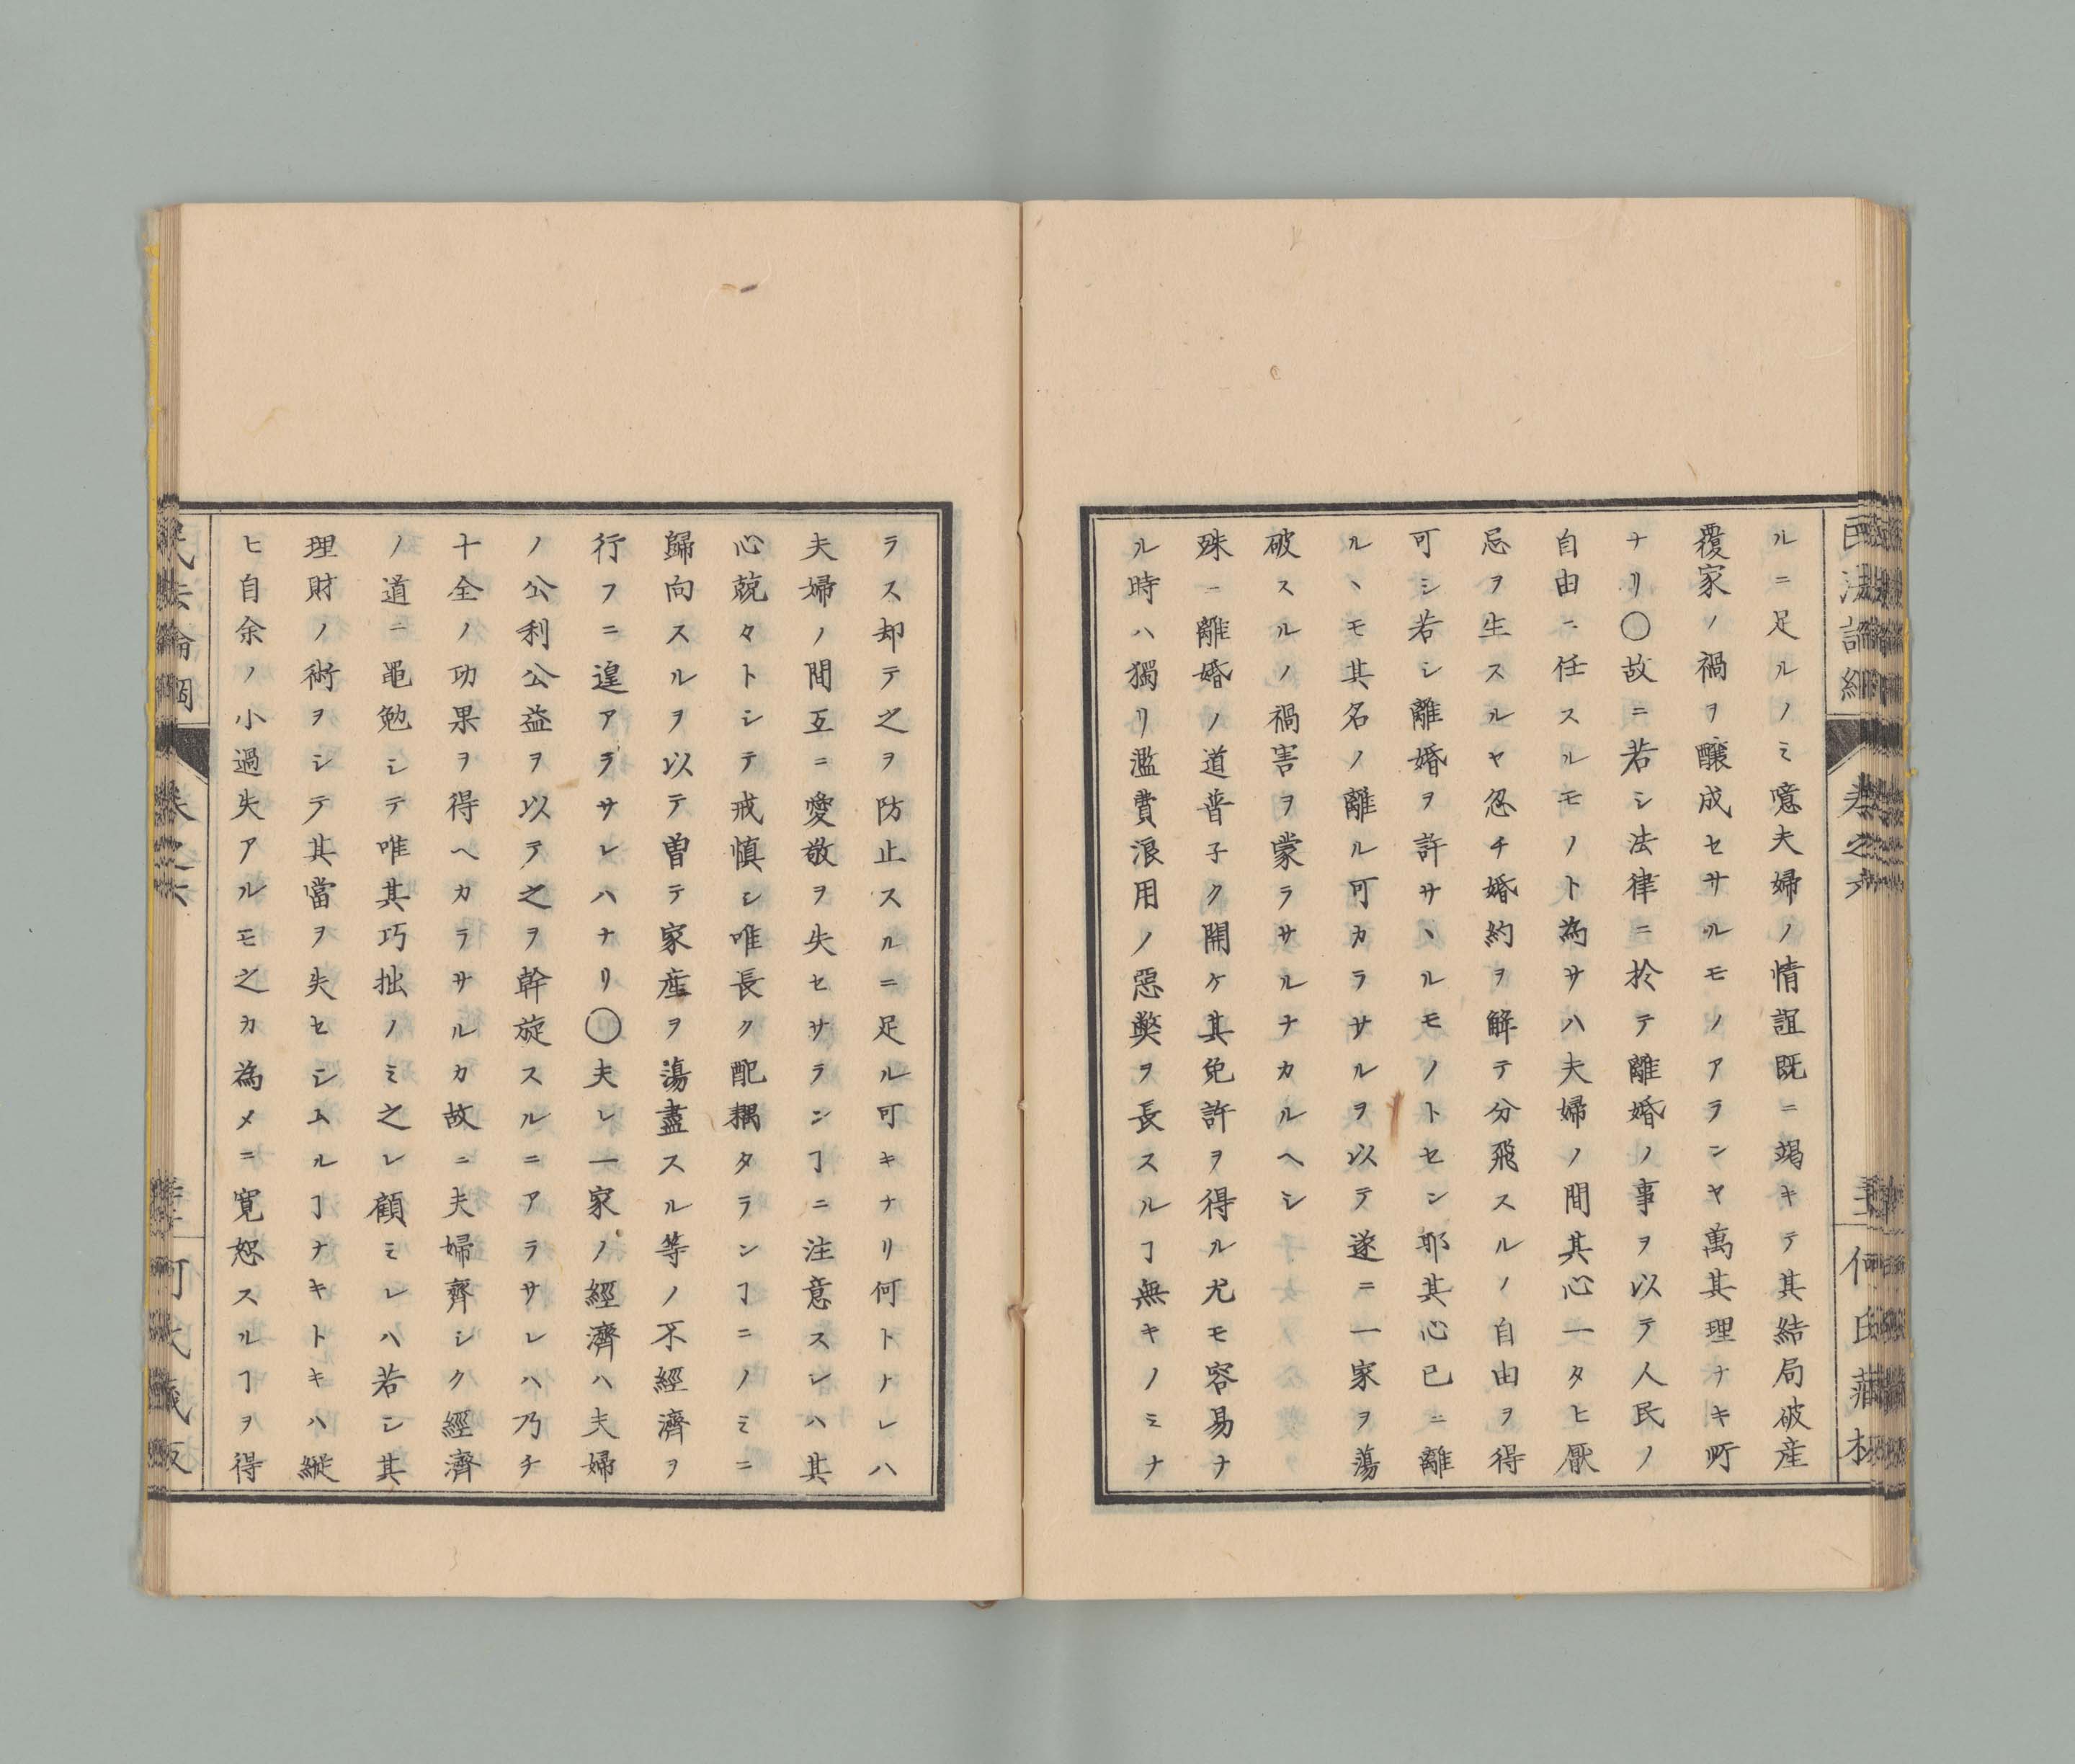 ルニ足ルノミ噫夫婦ノ情誼既ニ竭キテ其結局破産
覆家ノ禍ヲ釀成セサルモノアランヤ萬其理ナキ所
ナリ〇故ニ若シ法律ニ於テ離婚ノ事ヲ以テ人民ノ
自由ニ任スルモノト為サハ夫婦ノ間其心一タヒ厭
忌ヲ生スルヤ忽チ婚約ヲ解テ分飛スルノ自由ヲ得
可シ若シ離婚ヲ許サヽルモノトセン耶其心已ニ離
ルヽモ其名ノ離ル可カラサルヲ以テ遂ニ一家ヲ蕩
破スルノ禍害ヲ蒙ラサルナカルヘシ
殊ニ離婚ノ道普子ク開ケ其免許ヲ得ル尤モ容易ナ
ル時ハ獨リ濫費浪用ノ惡獘ヲ長スルヿ無キノミナ
ラス却テ之ヲ防止スルニ足ル可キナリ何トナレハ
夫婦ノ間互ニ愛敬ヲ失セサランヿニ注意スレハ其
心兢々トシテ戒慎シ唯長ク配耦タランヿニノミニ
歸向スルヲ以テ曽テ家産ヲ蕩盡スル等ノ不經濟ヲ
行フニ遑アラサレハナリ〇夫レ一家ノ經濟ハ夫婦
ノ公利公益ヲ以テ之ヲ幹旋スルニアラサレハ乃チ
十全ノ功果ヲ得ヘカラサルカ故ニ夫婦齊シク經濟
ノ道ニ黽勉シテ唯其巧拙ノミ之レ顧ミレハ若シ其
理財ノ術ヲシテ其當ヲ失セシムルヿナキトキハ縱
ヒ自余ノ小過失アルモ之カ為メニ寛恕スルヿヲ得